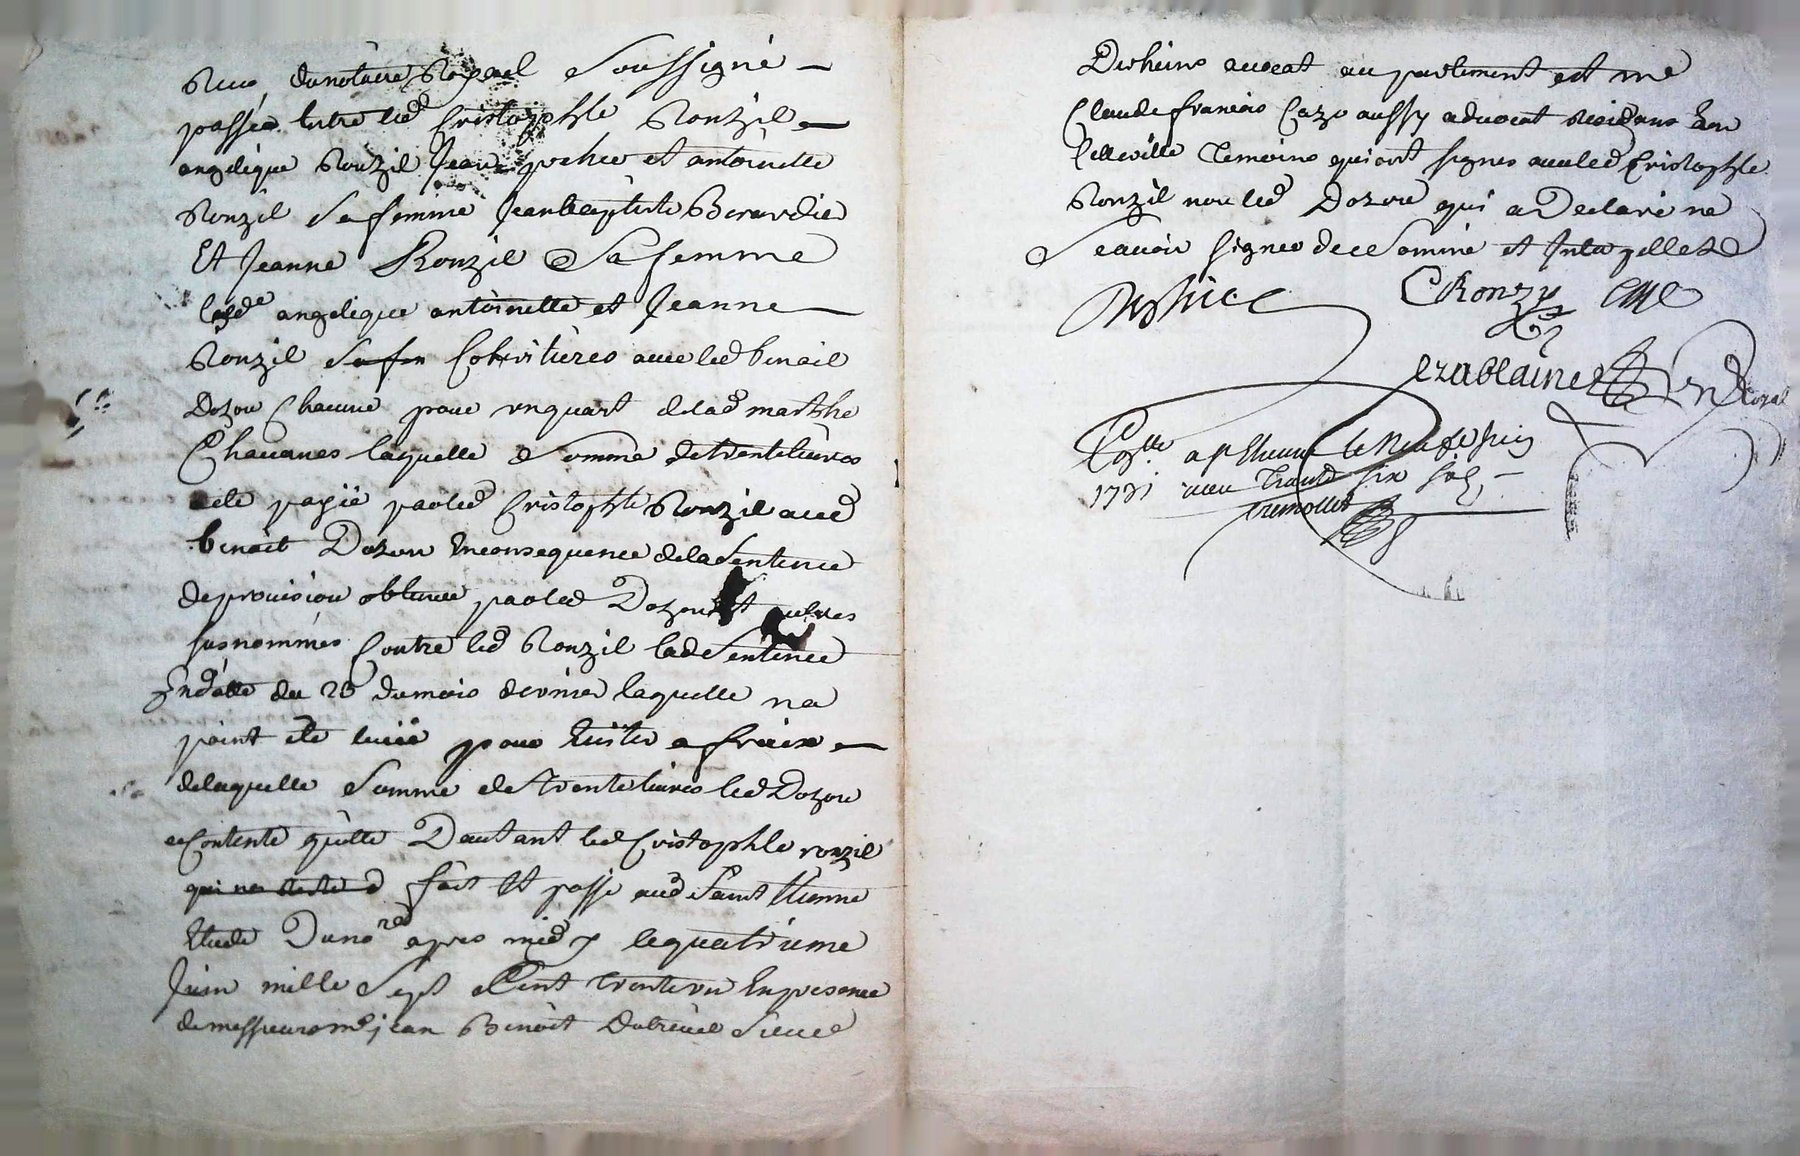 Reçu du notaire Royael soussigné
passée entre led Cristophle Ronzil
angelique Ronzil Jean et antoinette
Ronzil sa femme Jean baptiste Berardier
Et Jeanne Ronzil Sa femme
lesde angelique antoinette et Jeanne
Ronzil Cohéritieres avec led benoit
Dozon Chacune pour un quart de lad marthe
Chavanes laquelle somme de trente livres
ete payée par led Cristophle Ronzil aud
benoit Dozon En consequence de la Sentence
de provision obtenue par led Dozon Et autres
susnommés Contre led Ronzil lad Sentence
En datte du 28 du mois dernier laquelle na
point ete levée pour Eviter a fraix
de laquelle somme de trente livres led Dozon
Contente quitte Dautant led Cristophle ronzil
fait Et passé aud Saint Etienne
Etude Du nore apres midy le quatrieme
Juin mille Sept Cent trente un En presence
de messieurs me jean Benoit Sieur
avocat au parlement et me
Claude francois Caze aussy advocat residans En
Celle ville Temoins qui ont signes avec led Cristophle
Ronzil non led Dozon qui a Declaré ne
scavoir signer de ce Sommé et Interpellé
CRonzy Caze
Royal
Collé a st Etienne le neuf Juin
1731 recu Trante six sols
tremollet